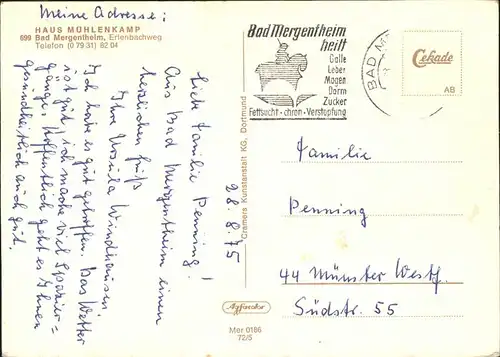 Meine Adresse:
HAUS MÜHLENKAMP
699 Bad Mergentheim, Erlenbachweg
Telefon (0 79 31) 82 04
28.8.75
Liebe Familie Penning!
Aus Bad Mergentheim einen
herzlichen Gruß
Ihre Ursula Windhausen
Ich habe es gut getroffen. Das Wetter
ist gut, ich mache viel Spazier-
gänge. Hoffentlich geht es Ihnen
gesundheitlich auch gut.
Cramers Kunstanstalt KG, Dortmund
Bad Mergentheim
heilt
Galle
Leber
Magen
Darm
Zucker
Fettsucht-chron-Verstopfung
BAD
Cekade
AB
Familie
Penning
44 Münster Westf.
Südstr. 55
Mer 0186
72/5